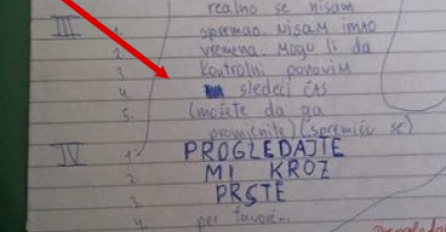 realno se nisam
III 1. spremao. NISAM IMAO
2. vremena. Mogu li da
3. kontrolni ponovim
4. sledeći čas
5. (možete da ga
promienite) (spremiću se)
IV 1. PROGLEDAJTE
2. MI KROZ
3. PRSTE
4. per favore.